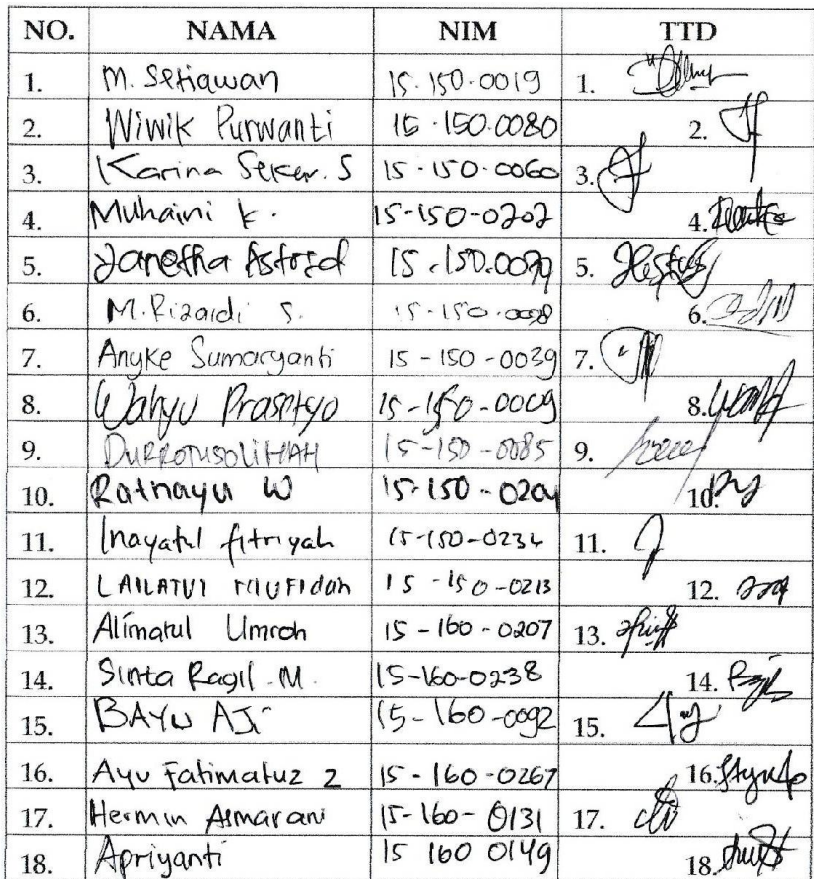 NO. NAMA NIM TTD
1. M. Setiawan 15.150.0019 1.
2. Wiwik Purwanti 15.150.0080 2.
3. Karina Sekar. S 15.150.0060 3.
4. Muhaini k. 15-150-0202 4.
5. 15.150.0079 5.
6. M. Rizaldi S. 15.150.0038 6.
7. Anyke Sumaryanti 15-150-0039 7.
8. Wahyu Prasetyo 15-150-0009 8.
9. DURROTUSOLIHAH 15-150-0085 9.
10. Ratnayu W 15-150-0204 10.
11. Inayatul fitriyah 15-150-0234 11.
12. LAILATUl MUFIdah 15-150-0213 12.
13. Alimatul Umroh 15-160-0207 13.
14. Sinta Ragil. M. 15-160-0238 14.
15. BAYU AJi 15-160-0092 15.
16. Ayu Fatimatuz Z 15-160-0267 16.
17. Hermin Asmarani 15-160-0131 17.
18. Apriyanti 15 160 0149 18.